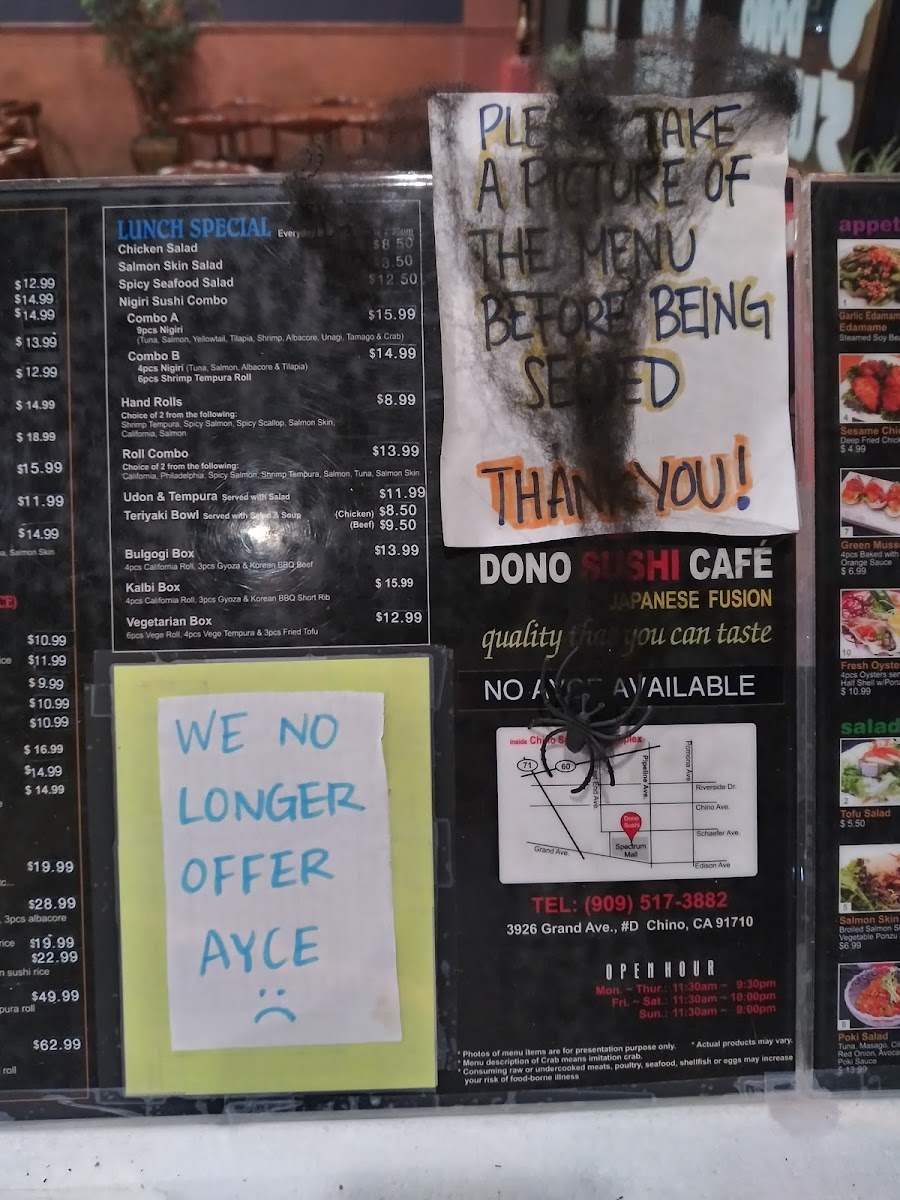 $12.99
$14.99
$14.99
$13.99
$12.99
$14.99
$18.99
$15.99
$11.99
$14.99
a, Salmon Skin
CE)
$10.99
ice $11.99
$9.99
$10.99
$10.99
$16.99
$14.99
$14.99
$19.99
$28.99
, 3pcs albacore
rice $19.99
$22.99
n sushi rice
$49.99
pura roll
$62.99
roll
LUNCH SPECIAL Everyday
Chicken Salad $8.50
Salmon Skin Salad 8.50
Spicy Seafood Salad $12.50
Nigiri Sushi Combo
Combo A $15.99
9pcs Nigiri
(Tuna, Salmon, Yellowtail, Tilapia, Shrimp, Albacore, Unagi, Tamago & Crab)
Combo B $14.99
4pcs Nigiri (Tuna, Salmon, Albacore & Tilapia)
6pcs Shrimp Tempura Roll
Hand Rolls $8.99
Choice of 2 from the following:
Shrimp Tempura, Spicy Salmon, Spicy Scallop, Salmon Skin,
California, Salmon
Roll Combo $13.99
Choice of 2 from the following:
California, Philadelphia, Spicy Salmon, Shrimp Tempura, Salmon, Tuna, Salmon Skin
Udon & Tempura Served with Salad $11.99
Teriyaki Bowl Served with Salad & Soup (Chicken) $8.50
(Beef) $9.50
Bulgogi Box $13.99
4pcs California Roll, 3pcs Gyoza & Korean BBQ Beef
Kalbi Box $15.99
4pcs California Roll, 3pcs Gyoza & Korean BBQ Short Rib
Vegetarian Box $12.99
6pcs Vege Roll, 4pcs Vege Tempura & 3pcs Fried Tofu
WE NO
LONGER
OFFER
AYCE
TAKE
A PICTURE OF
THE MENU
BEFORE BEING
SERVED
THANK YOU!
DONO SUSHI CAFÉ
JAPANESE FUSION
quality that you can taste
NO AYCE AVAILABLE
inside
71
60
Pipeline Ave.
Pomona Ave
Riverside Dr.
Chino Ave.
Dono
Sushi
Schaefer Ave.
Spectrum
Mall
Grand Ave.
Edison Ave
TEL: (909) 517-3882
3926 Grand Ave., #D Chino, CA 91710
OPEN HOUR
Mon. ~ Thur.: 11:30am ~ 9:30pm
Fri. ~ Sat.: 11:30am ~ 10:00pm
Sun.: 11:30am ~ 9:00pm
* Photos of menu items are for presentation purpose only. * Actual products may vary.
* Menu description of Crab means imitation crab.
* Consuming raw or undercooked meats, poultry, seafood, shellfish or eggs may increase
your risk of food-borne illness
appet
1
Garlic Edamam
Edamame
Steamed Soy Be
4
Sesame Chi
Deep Fried Chick
$4.99
7
Green Muss
4pcs Baked with
Orange Sauce
$6.99
10
Fresh Oyste
4pcs Oysters ser
Half Shell w/Ponz
$10.99
salad
2
Tofu Salad
$5.50
5
Salmon Skin
Broiled Salmon S
Vegetable Ponzu
$6.99
8
Poki Salad
Tuna, Masago, Cil
Red Onion, Avoca
Poki Sauce
$13.99